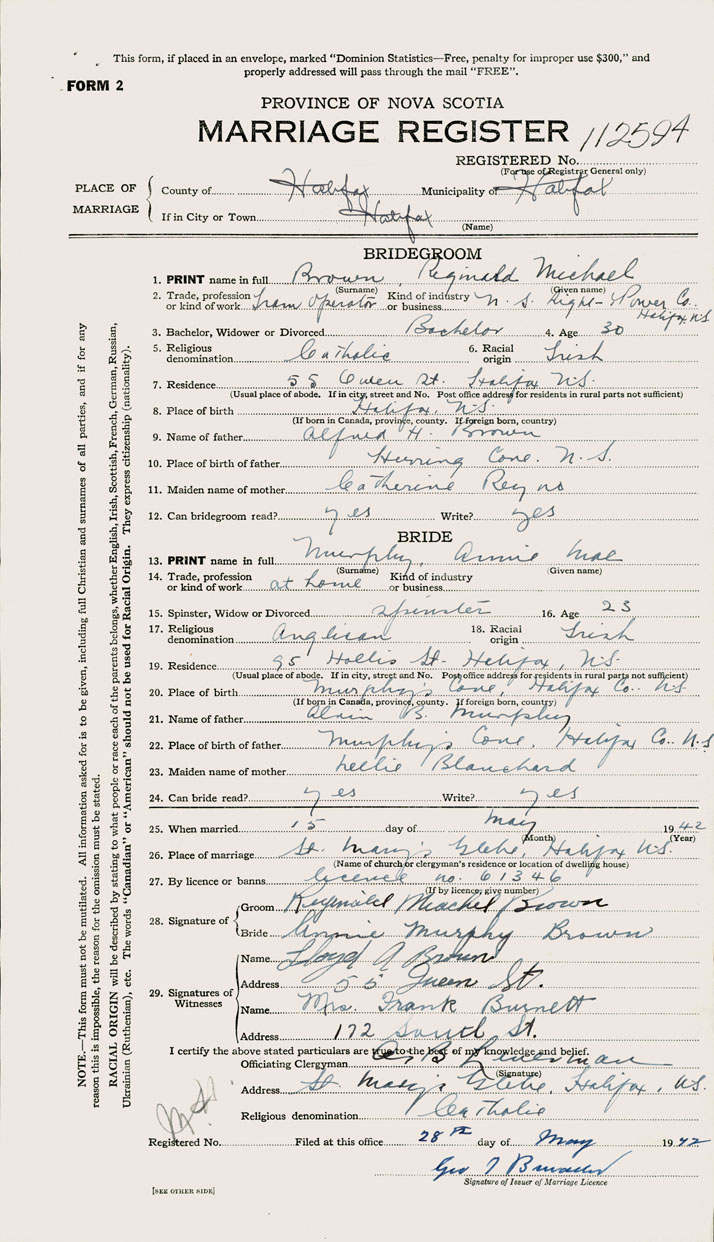 This form, if placed in an envelope, marked "Dominion Statistics—Free, penalty for improper use $300," and
properly addressed will pass through the mail "FREE".
FORM 2
PROVINCE OF NOVA SCOTIA
MARRIAGE REGISTER 112594
REGISTERED No.
(For use of Registrar General only)
PLACE OF MARRIAGE
County of Halifax Municipality of Halifax
If in City or Town Halifax
(Name)
BRIDEGROOM
1. PRINT name in full Brown, Reginald Michael
(Surname) (Given name)
2. Trade, profession or kind of work Tram Operator Kind of industry or business N.S. Light & Power Co. Halifax N.S.
3. Bachelor, Widower or Divorced Bachelor 4. Age 30
5. Religious denomination Catholic 6. Racial origin Irish
7. Residence 55 Queen St. Halifax N.S.
(Usual place of abode. If in city, street and No. Post office address for residents in rural parts not sufficient)
8. Place of birth Halifax, N.S.
(If born in Canada, province, county. If foreign born, country)
9. Name of father Alfred H. Brown
10. Place of birth of father Herring Cove. N.S.
11. Maiden name of mother Catherine Reyno
12. Can bridegroom read? yes Write? yes
BRIDE
13. PRINT name in full Murphy, Annie Mae
(Surname) (Given name)
14. Trade, profession or kind of work at home Kind of industry or business
15. Spinster, Widow or Divorced spinster 16. Age 23
17. Religious denomination Anglican 18. Racial origin Irish
19. Residence 95 Hollis St. Halifax, N.S.
(Usual place of abode. If in city, street and No. Post office address for residents in rural parts not sufficient)
20. Place of birth Murphy's Cove, Halifax Co. N.S.
(If born in Canada, province, county. If foreign born, country)
21. Name of father B. Murphy
22. Place of birth of father Murphy's Cove, Halifax Co. N.S.
23. Maiden name of mother Nellie Blanchard
24. Can bride read? yes Write? yes
25. When married 15 day of May 1942
(Month) (Year)
26. Place of marriage St. Mary's Glebe, Halifax N.S.
(Name of church or clergyman's residence or location of dwelling house)
27. By licence or banns licence no. 61346
(If by licence, give number)
28. Signature of
Groom Reginald Miachel Brown
Bride Annie Murphy Brown
29. Signatures of Witnesses
Name Lloyd A Brown
Address 55 Queen St.
Name Mrs. Frank Burnett
Address 172 South St.
I certify the above stated particulars are true to the best of my knowledge and belief.
Officiating Clergyman
(Signature)
Address St. Mary's Glebe, Halifax, N.S.
Religious denomination Catholic
Registered No. Filed at this office 28th day of May 1942
Geo
Signature of Issuer of Marriage Licence
[SEE OTHER SIDE]
NOTE.—This form must not be mutilated. All information asked for is to be given, including full Christian and surnames of all parties, and if for any
reason this is impossible, the reason for the omission must be stated.
RACIAL ORIGIN will be described by stating to what people or race each of the parents belongs, whether English, Irish, Scottish, French, German, Russian,
Ukrainian (Ruthenian), etc. The words "Canadian" or "American" should not be used for Racial Origin. They express citizenship (nationality).